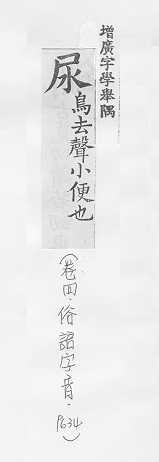 增廣字學舉隅
尿鳥去聲小便也
(卷四·俗語字音·P634)